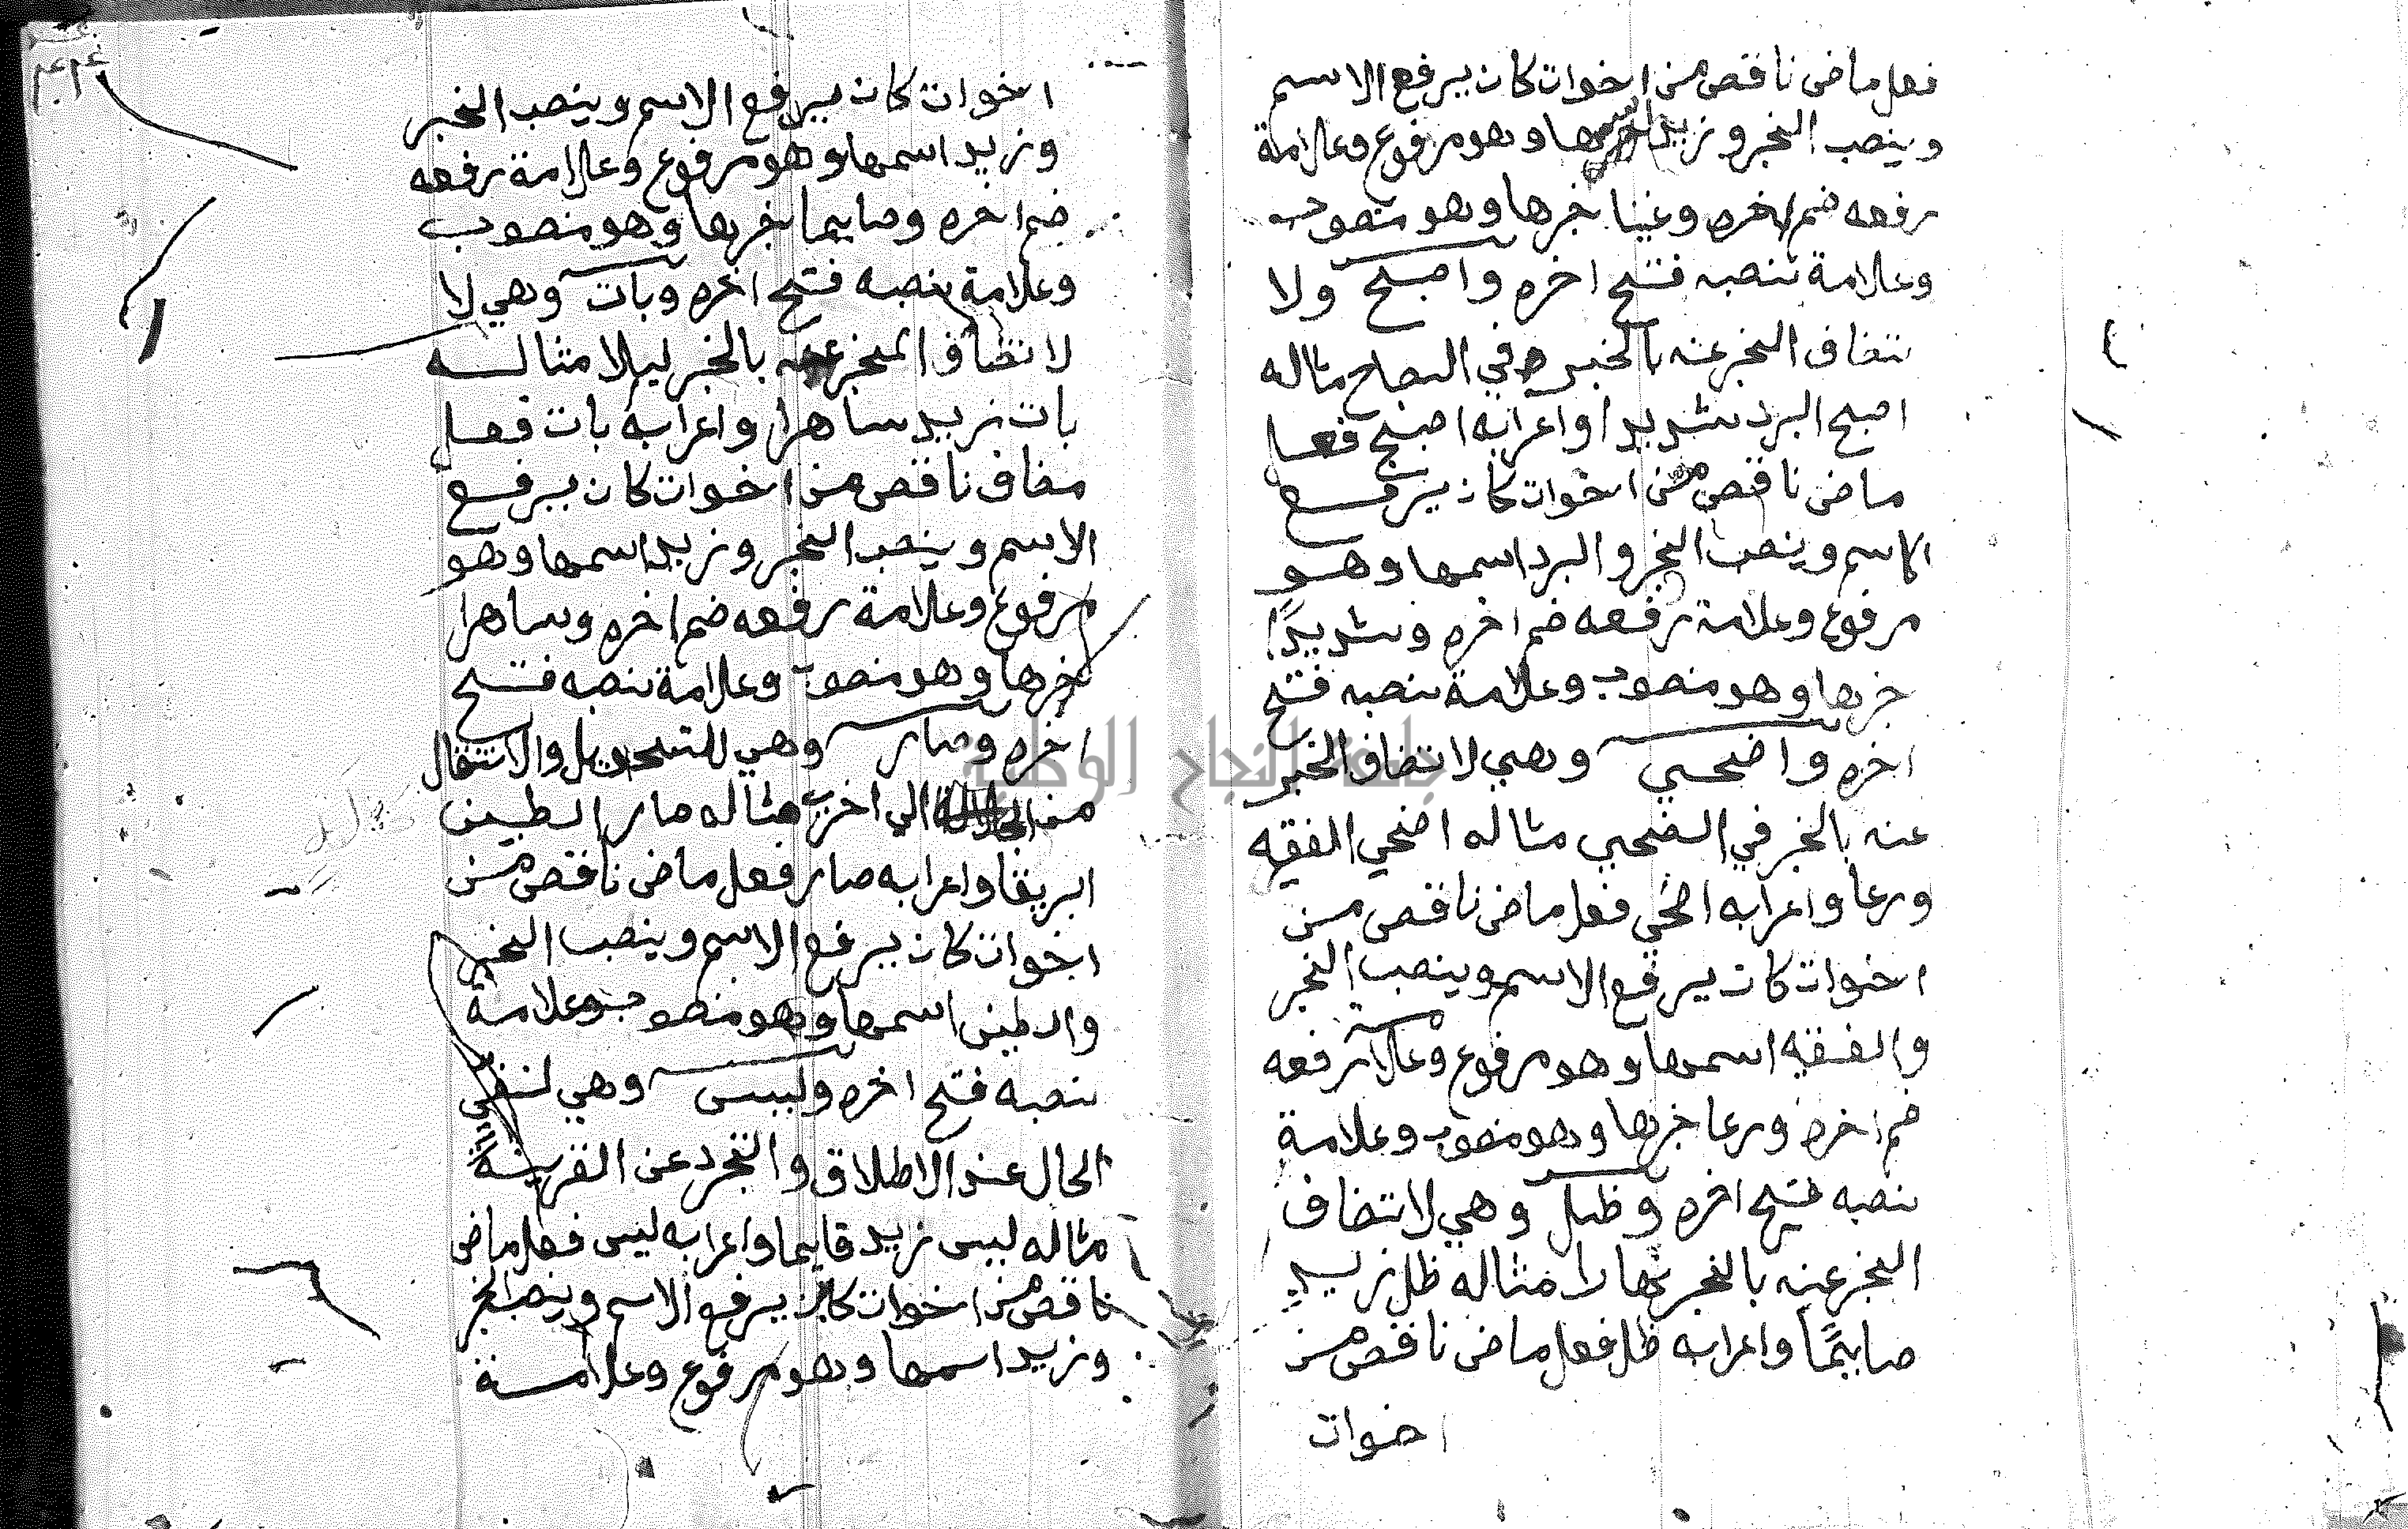 فعل ماضى ناقص من اخوات كان يرفع الاسم
وينصب الخبر وزيد اسمها وهو مرفوع وعلامة
رفعه ضم اخره وغنيا خبرها وهو منصوب
وعلامة نصبه فتح اخره واصبح ولا
تضاف المخبر عنه بالخبر في الصباح مثاله
اصبح البرد شديدا واعرابه اصبح فعل
ماضى ناقص من اخوات كان يرفع
الاسم وينصب الخبر والبرد اسمها وهو
مرفوع وعلامة رفعه ضم اخره وشديدًا
خبرها وهو منصوب وعلامة نصبه فتح
اخره واضحي وهي لا تضاف الخبر
عنه بالخبر في الضحي مثاله اضحي الفقيه
ورعا واعرابه اضحي فعل ماضى ناقص من
اخوات كان يرفع الاسم وينصب الخبر
والفقيه اسمها وهو مرفوع وعلامة رفعه
ضم اخره ورعا خبرها وهو منصوب وعلامة
نصبه فتح اخره وظل وهي لا تضاف
المخبر عنه بالخبر نهارا مثاله ظل زيد
صايمًا واعرابه ظل فعل ماضى ناقص من
اخوات
اخوات كان يرفع الاسم وينصب الخبر
وزيد اسمها وهو مرفوع وعلامة رفعه
ضم اخره وصايما خبرها وهو منصوب
وعلامة نصبه فتح اخره وبات وهي لا
لا تضاف المخبر عنه بالخبر ليلا مثاله
بات زيد ساهرا واعرابه بات فعل
مضاف ناقص من اخوات كان يرفع
الاسم وينصب الخبر وزيد اسمها وهو
مرفوع وعلامة رفعه ضم اخره وساهرا
خبرها وهو منصوب وعلامة نصبه فتح
اخره وصار وهي للتحويل والانتقال
من الي اخرى مثاله صار الطين
ابريقا واعرابه صار فعل ماضى ناقص من
اخوات كان يرفع الاسم وينصب الخبر
والطين اسمها وهو منصوب وعلامة
نصبه فتح اخره وليس وهي لنفي
الحال عند الاطلاق والتجرد عن القرينة
مثاله ليس زيد قايما واعرابه ليس فعل ماضى
ناقص من اخوات كان يرفع الاسم وينصب الخبر
وزيد اسمها وهو مرفوع وعلامة
جامعة النجاح الوطنية